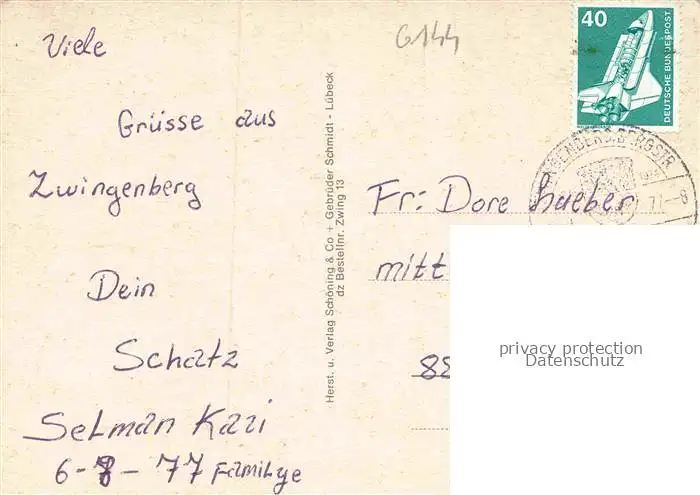 Viele
Grüsse aus
Zwingenberg
Dein
Schatz
Selman Kazi
6-8-77 Familye
G144
Herst. u. Verlag Schöning & Co + Gebrüder Schmidt - Lübeck
dz Bestellnr. Zwing 13
40
DEUTSCHE BUNDESPOST
77-8
Fr: Dore Hueber
mitt
88
privacy protection
Datenschutz